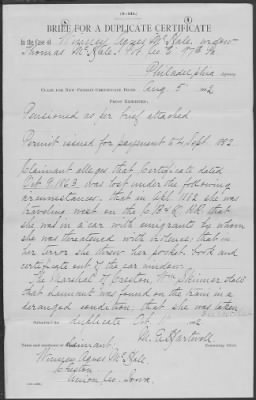 BRIEF FOR A DUPLICATE CERTIFICATE.
In the Case of Winney Agnes McHale, widow
Thomas McHale, Co. 17th Pa
Philadelphia Agency
CLAIM FOR NEW PENSION CERTIFICATE FILED Aug. 5, 1882
PROOF EXHIBITED:
Pensioned as per brief attached
Permit issued for payment to 4 Sept. 1882.
Claimant alleges that Certificate dated
Feb 9 1863 was lost under the following
circumstances, that in 1882 she was
traveling west on the R.R. that
she was in a car with emigrants by whom
she was threatened with violence; that in
her terror she threw her pocket book and
certificate out of the car window.
The Marshal of Creston, Wm Skinner states
that claimant was found on the train in a
deranged condition, that she was taken
duplicate Oct 1882
M. E. Hartwell
claimant:
Winney Agnes McHale,
Creston,
Union Co. Iowa.